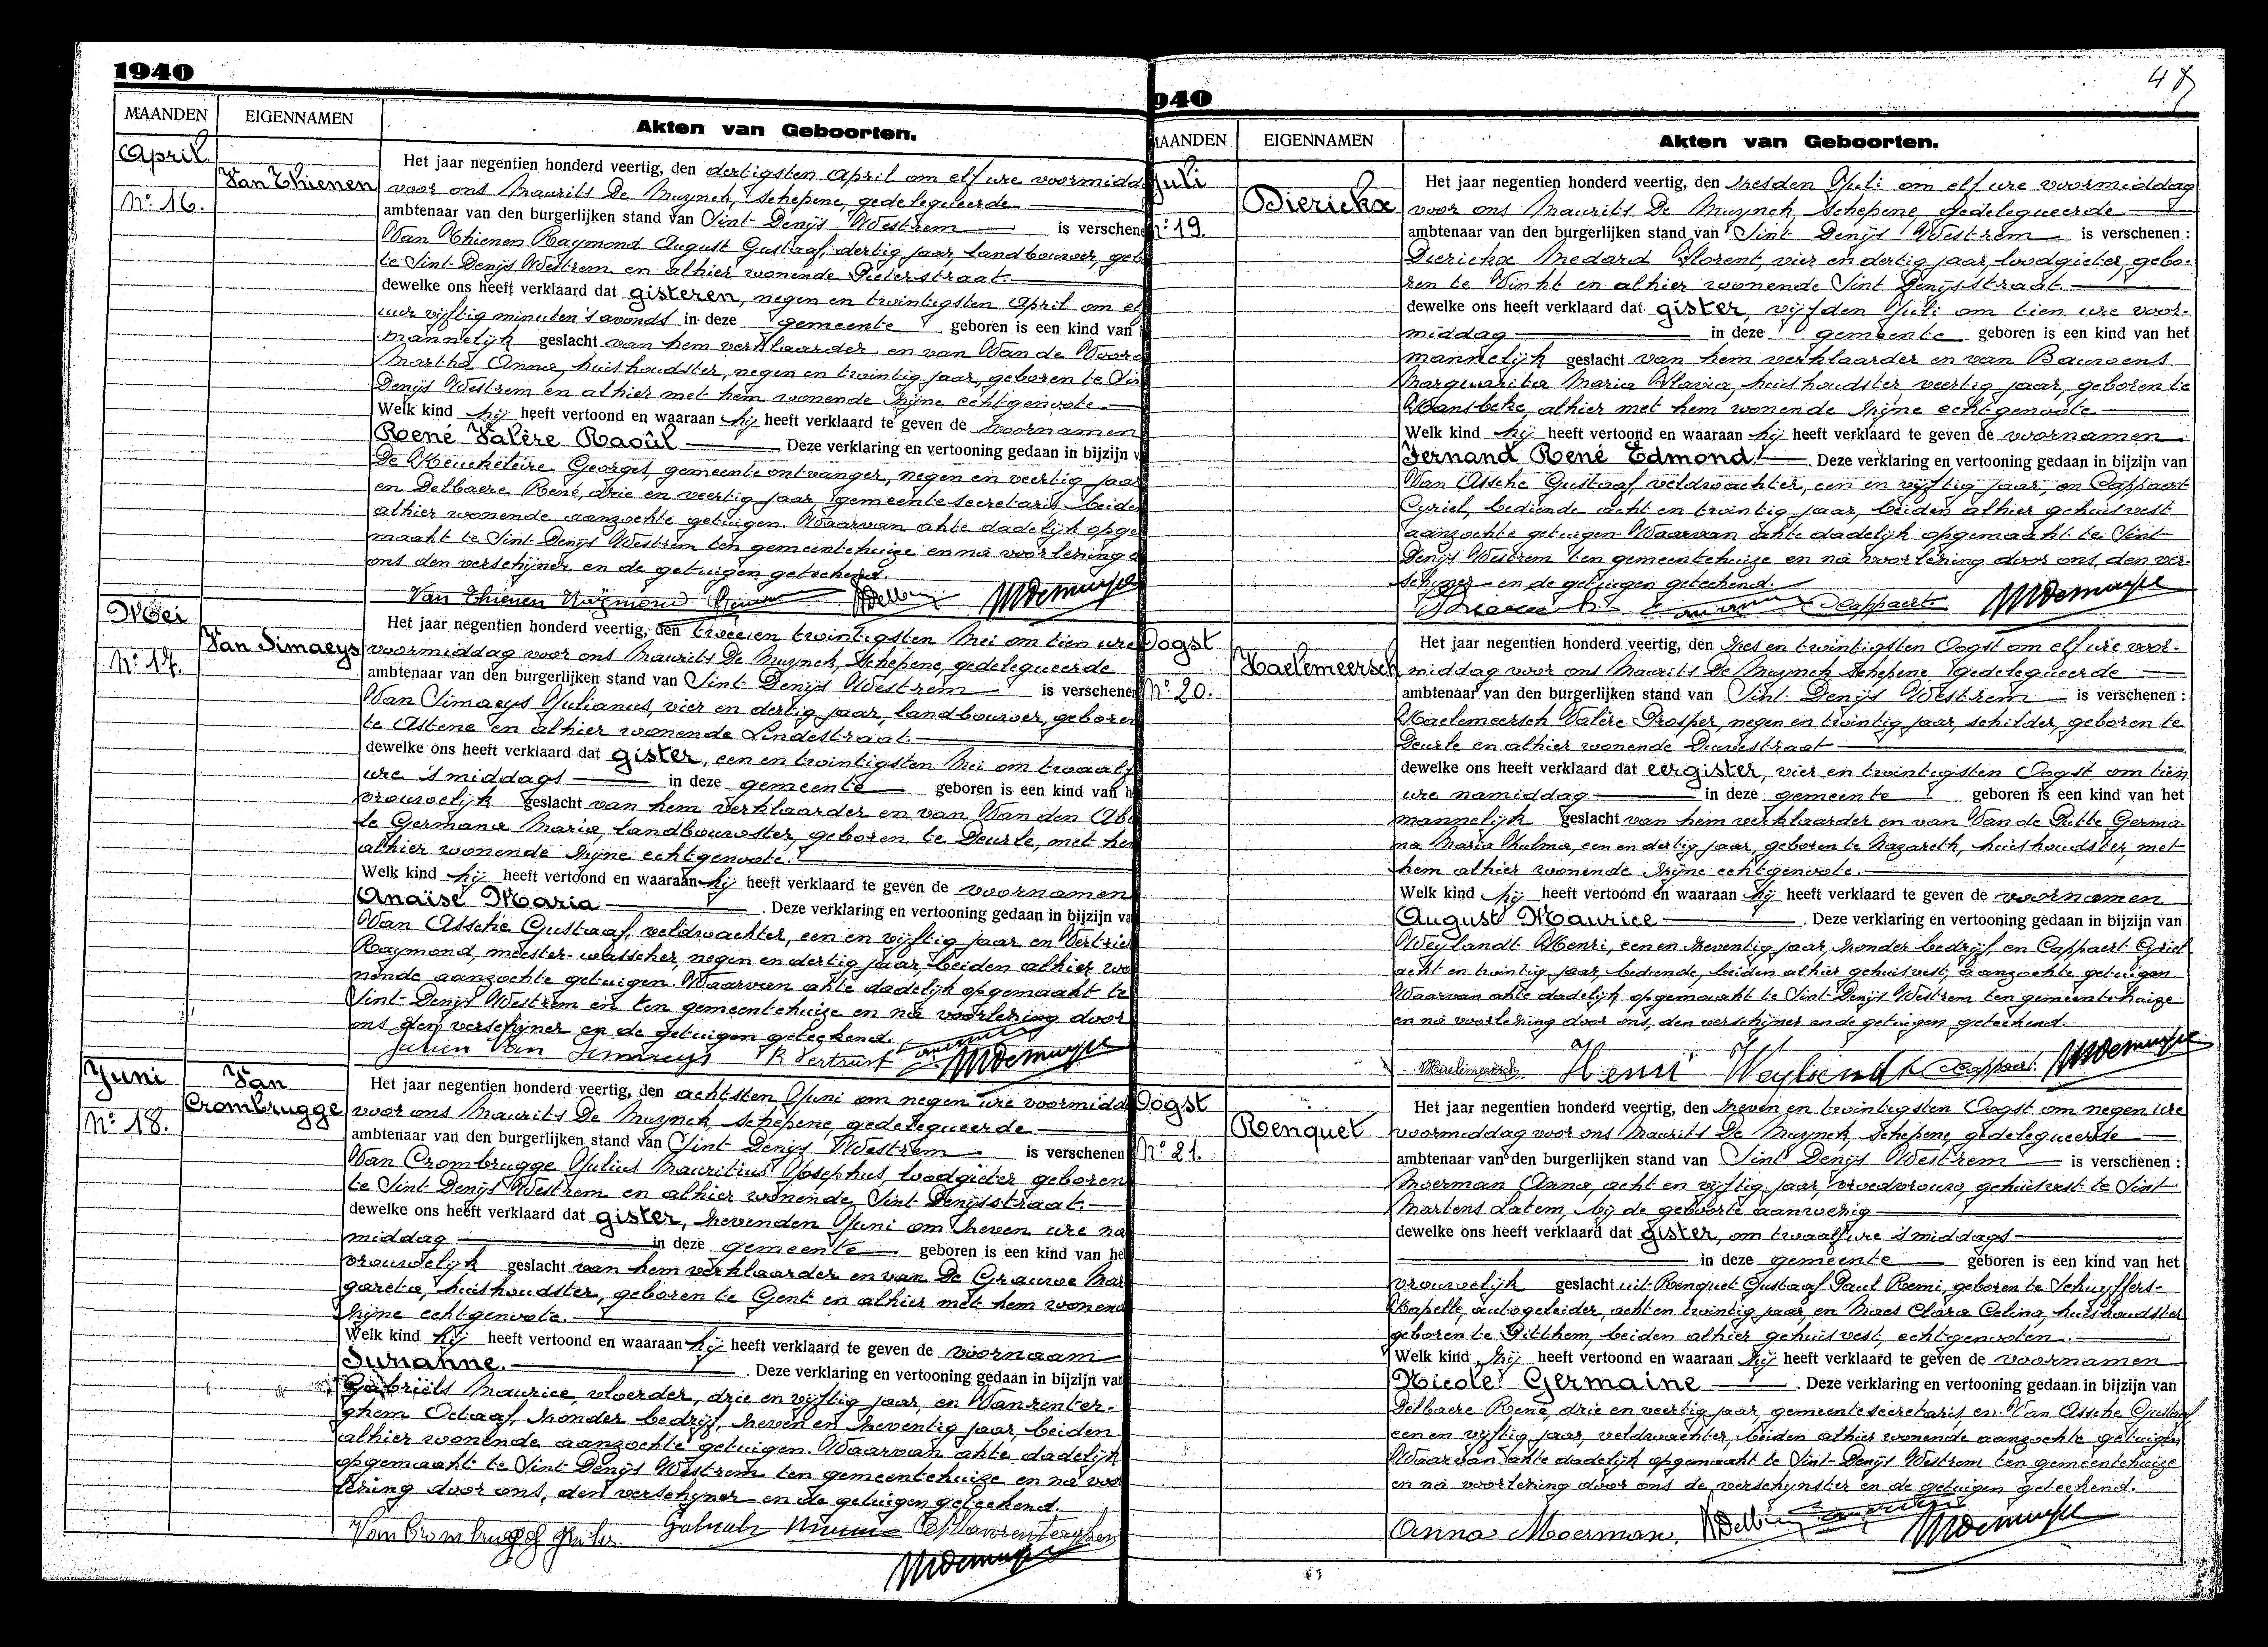 1940
MAANDEN EIGENNAMEN Akten van Geboorten.
April
Nº 16.
Van Thienen
Het jaar negentien honderd veertig, den dertigsten April om elf ure voormidda
voor ons Maurits De Muynck, Schepene, gedelegueerde
ambtenaar van den burgerlijken stand van Sint-Denijs Westrem is verschene
Van Thienen Raymond August Gustaaf, dertig jaar, landbouwer, geb
te Sint-Denijs Westrem en alhier wonende Pieterstraat.
dewelke ons heeft verklaard dat gisteren, negen en twintigsten April om el
uur vijftig minuten 's avonds in deze gemeente geboren is een kind van h
mannelijk geslacht van hem verklaarder en van Van de Voor
Martha Anna, huishoudster, negen en twintig jaar, geboren te Sin
Denijs Westrem en alhier met hem wonende zijne echtgenoote
Welk kind hij heeft vertoond en waaraan hij heeft verklaard te geven de voornamen
René Valère Raoûl Deze verklaring en vertooning gedaan in bijzijn v
De Meuckeleire Georges, gemeente ontvanger, negen en veertig jaar
en Delbaere René, drie en veertig jaar, gemeentesecretaris beiden
alhier wonende aanzochte getuigen. Waarvan akte dadelijk opge
maakt te Sint Denijs Westrem ten gemeentehuize en na voorlezing d
ons den verschijner en de getuigen geteekend.
Van Thienen Raymond
Mei
Nº 17.
Van Simaeys
Het jaar negentien honderd veertig, den twee en twintigsten Mei om tien ure
voormiddag voor ons Maurits De Muynck, Schepene, gedelegueerde
ambtenaar van den burgerlijken stand van Sint-Denijs Westrem is verschenen
Van Simaeys Julianus, vier en dertig jaar, landbouwer, geboren
te Astene en alhier wonende Lindestraat.
dewelke ons heeft verklaard dat gister, een en twintigsten Mei om twaalf
ure 's middags in deze gemeente geboren is een kind van h
vrouwelijk geslacht van hem verklaarder en van Van den Abe
le Germana Maria, landbouwster, geboren te Deurle, met hem
alhier wonende zijne echtgenoote.
Welk kind hij heeft vertoond en waaraan hij heeft verklaard te geven de voornamen
Anaïse Maria . Deze verklaring en vertooning gedaan in bijzijn va
Van Assche Gustaaf, veldwachter, een en vijftig jaar en Vertriest
Raymond, meester-wasscher, negen en dertig jaar, beiden alhier wo
nende aanzochte getuigen. Waarvan akte dadelijk opgemaakt te
Sint-Denijs Westrem en ten gemeentehuize en na voorlezing door
ons den verschijner en de getuigen geteekend.
Julien Van Simaeys R Vertriest
Juni
Nº 18.
Van
Crombrugge
Het jaar negentien honderd veertig, den achtsten Juni om negen ure voormidd
voor ons Maurits De Muynck, Schepene, gedelegueerde
ambtenaar van den burgerlijken stand van Sint Denijs Westrem is verschenen
Van Crombrugge Julius Mauritius Josephus, loodgieter geboren
te Sint Denijs Westrem en alhier wonende Sint Denijsstraat.
dewelke ons heeft verklaard dat gister, zevenden Juni om zeven ure na
middag in deze gemeente geboren is een kind van he
vrouwelijk geslacht van hem verklaarder en van De Grauwe Mar
gareta, huishoudster, geboren te Gent en alhier met hem wonend
zijne echtgenoote.
Welk kind hij heeft vertoond en waaraan hij heeft verklaard te geven de voornaam
Suzanne. . Deze verklaring en vertooning gedaan in bijzijn van
Gabriëls Maurice, vloerder, drie en vijftig jaar, en Vanrenter-
ghem Octaaf, zonder bedrijf, zeven en zeventig jaar, beiden
alhier wonende aanzochte getuigen. Waarvan akte dadelijk
opgemaakt te Sint Denijs Westrem ten gemeentehuize en na voo
lezing door ons, den verschijner en de getuigen geteekend.
940
MAANDEN EIGENNAMEN Akten van Geboorten.
Juli
Nº 19.
Dierickx
Het jaar negentien honderd veertig, den zesden Juli om elf ure voormiddag
voor ons Maurits De Muynck, Schepene, gedelegueerde
ambtenaar van den burgerlijken stand van Sint-Denijs Westrem is verschenen :
Dierickx Medard Florent, vier en dertig jaar, loodgieter, gebo-
ren te Vinkt en alhier wonende Sint Denijsstraat.
dewelke ons heeft verklaard dat gister, vijfden Juli om tien ure voor-
middag in deze gemeente geboren is een kind van het
mannelijk geslacht van hem verklaarder en van Bauwens
Marguarita Maria Flavia, huishoudster veertig jaar, geboren te
Hansbeke, alhier met hem wonende zijne echtgenoote
Welk kind hij heeft vertoond en waaraan hij heeft verklaard te geven de voornamen
Fernand René Edmond. . Deze verklaring en vertooning gedaan in bijzijn van
Van Assche Gustaaf, veldwachter, een en vijftig jaar, en Cappaert
Cyriel, bediende acht en twintig jaar, beiden alhier gehuisvest
aanzochte getuigen. Waarvan akte dadelijk opgemaakt te Sint
Denijs Westrem ten gemeentehuize en na voorlezing door ons, den ver-
schijner en de getuigen geteekend.
CCappaert
Oogst
Nº 20.
Haelemeersch
Het jaar negentien honderd veertig, den zes en twintigsten Oogst om elf ure voor-
middag voor ons Maurits De Muynck Schepene gedelegueerde
ambtenaar van den burgerlijken stand van Sint Denijs Westrem is verschenen :
Haelemeersch Valère Prosper, negen en twintig jaar, schilder, geboren te
Deurle en alhier wonende Duivestraat
dewelke ons heeft verklaard dat eergister, vier en twintigsten Oogst om tien
ure namiddag in deze gemeente geboren is een kind van het
mannelijk geslacht van hem verklaarder en van Van de Putte Germa-
na Maria Zulma, een en dertig jaar, geboren te Nazareth, huishoudster, met
hem alhier wonende zijne echtgenoote.
Welk kind hij heeft vertoond en waaraan hij heeft verklaard te geven de voornamen
August Maurice . Deze verklaring en vertooning gedaan in bijzijn van
Weylandt Henri, een en zeventig jaar, zonder bedrijf en Cappaert Cyriel
acht en twintig jaar, bediende, beiden alhier gehuisvest, aanzochte getuigen.
Waarvan akte dadelijk opgemaakt te Sint Denijs Westrem ten gemeentehuize
en na voorlezing door ons, den verschijner en de getuigen geteekend.
Haelemeersch Henri Weylandt CCappaert
Oogst
Nº 21.
Renquet
Het jaar negentien honderd veertig, den zeven en twintigsten Oogst om negen ure
voormiddag voor ons Maurits De Muynck, Schepene, gedelegueerde
ambtenaar van den burgerlijken stand van Sint Denijs Westrem is verschenen :
Moerman Anna, acht en vijftig jaar, vroedvrouw, gehuisvest te Sint
Martens Latem, bij de geboorte aanwezig
dewelke ons heeft verklaard dat gister, om twaalf ure 's middags
in deze gemeente geboren is een kind van het
vrouwelijk geslacht uit Renquet Gustaaf Paul Remi, geboren te Schuyffers-
Kapelle, autogeleider, acht en twintig jaar, en Maes Clara Celina, huishoudster
geboren te Pitthem, beiden alhier gehuisvest, echtgenooten.
Welk kind zij heeft vertoond en waaraan zij heeft verklaard te geven de voornamen
Nicole Germaine . Deze verklaring en vertooning gedaan in bijzijn van
Delbaere René, drie en veertig jaar, gemeentesecretaris en Van Assche Gustaaf
een en vijftig jaar, veldwachter, beiden alhier wonende aanzochte getuigen
Waarvan akte dadelijk opgemaakt te Sint-Denijs Westrem ten gemeentehuize
en na voorlezing door ons de verschijnster en de getuigen geteekend.
Anna Moerman.